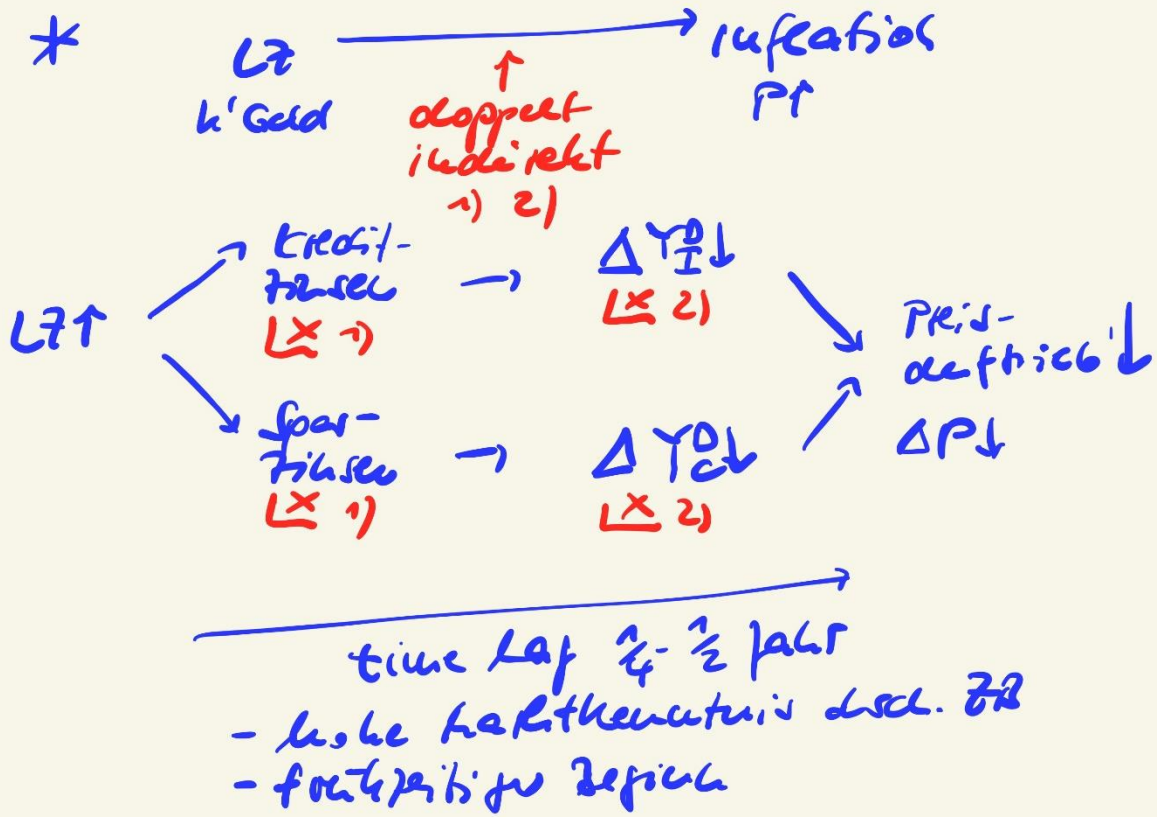 * LZ → Inflation
k' Geld P↑
↑
doppelt
indirekt
1) 2)
LZ↑
Kredit-
zinsen
x 1)
→ Δ Y^D_I ↓
x 2)
Spar-
zinsen
x 1)
→ Δ Y^D_C ↓
x 2)
Preis-
auftrieb ↓
ΔP↓
time lag 1/4 - 1/2 Jahr
- hohe Marktkenntnis ZB
- frühzeitiger Beginn